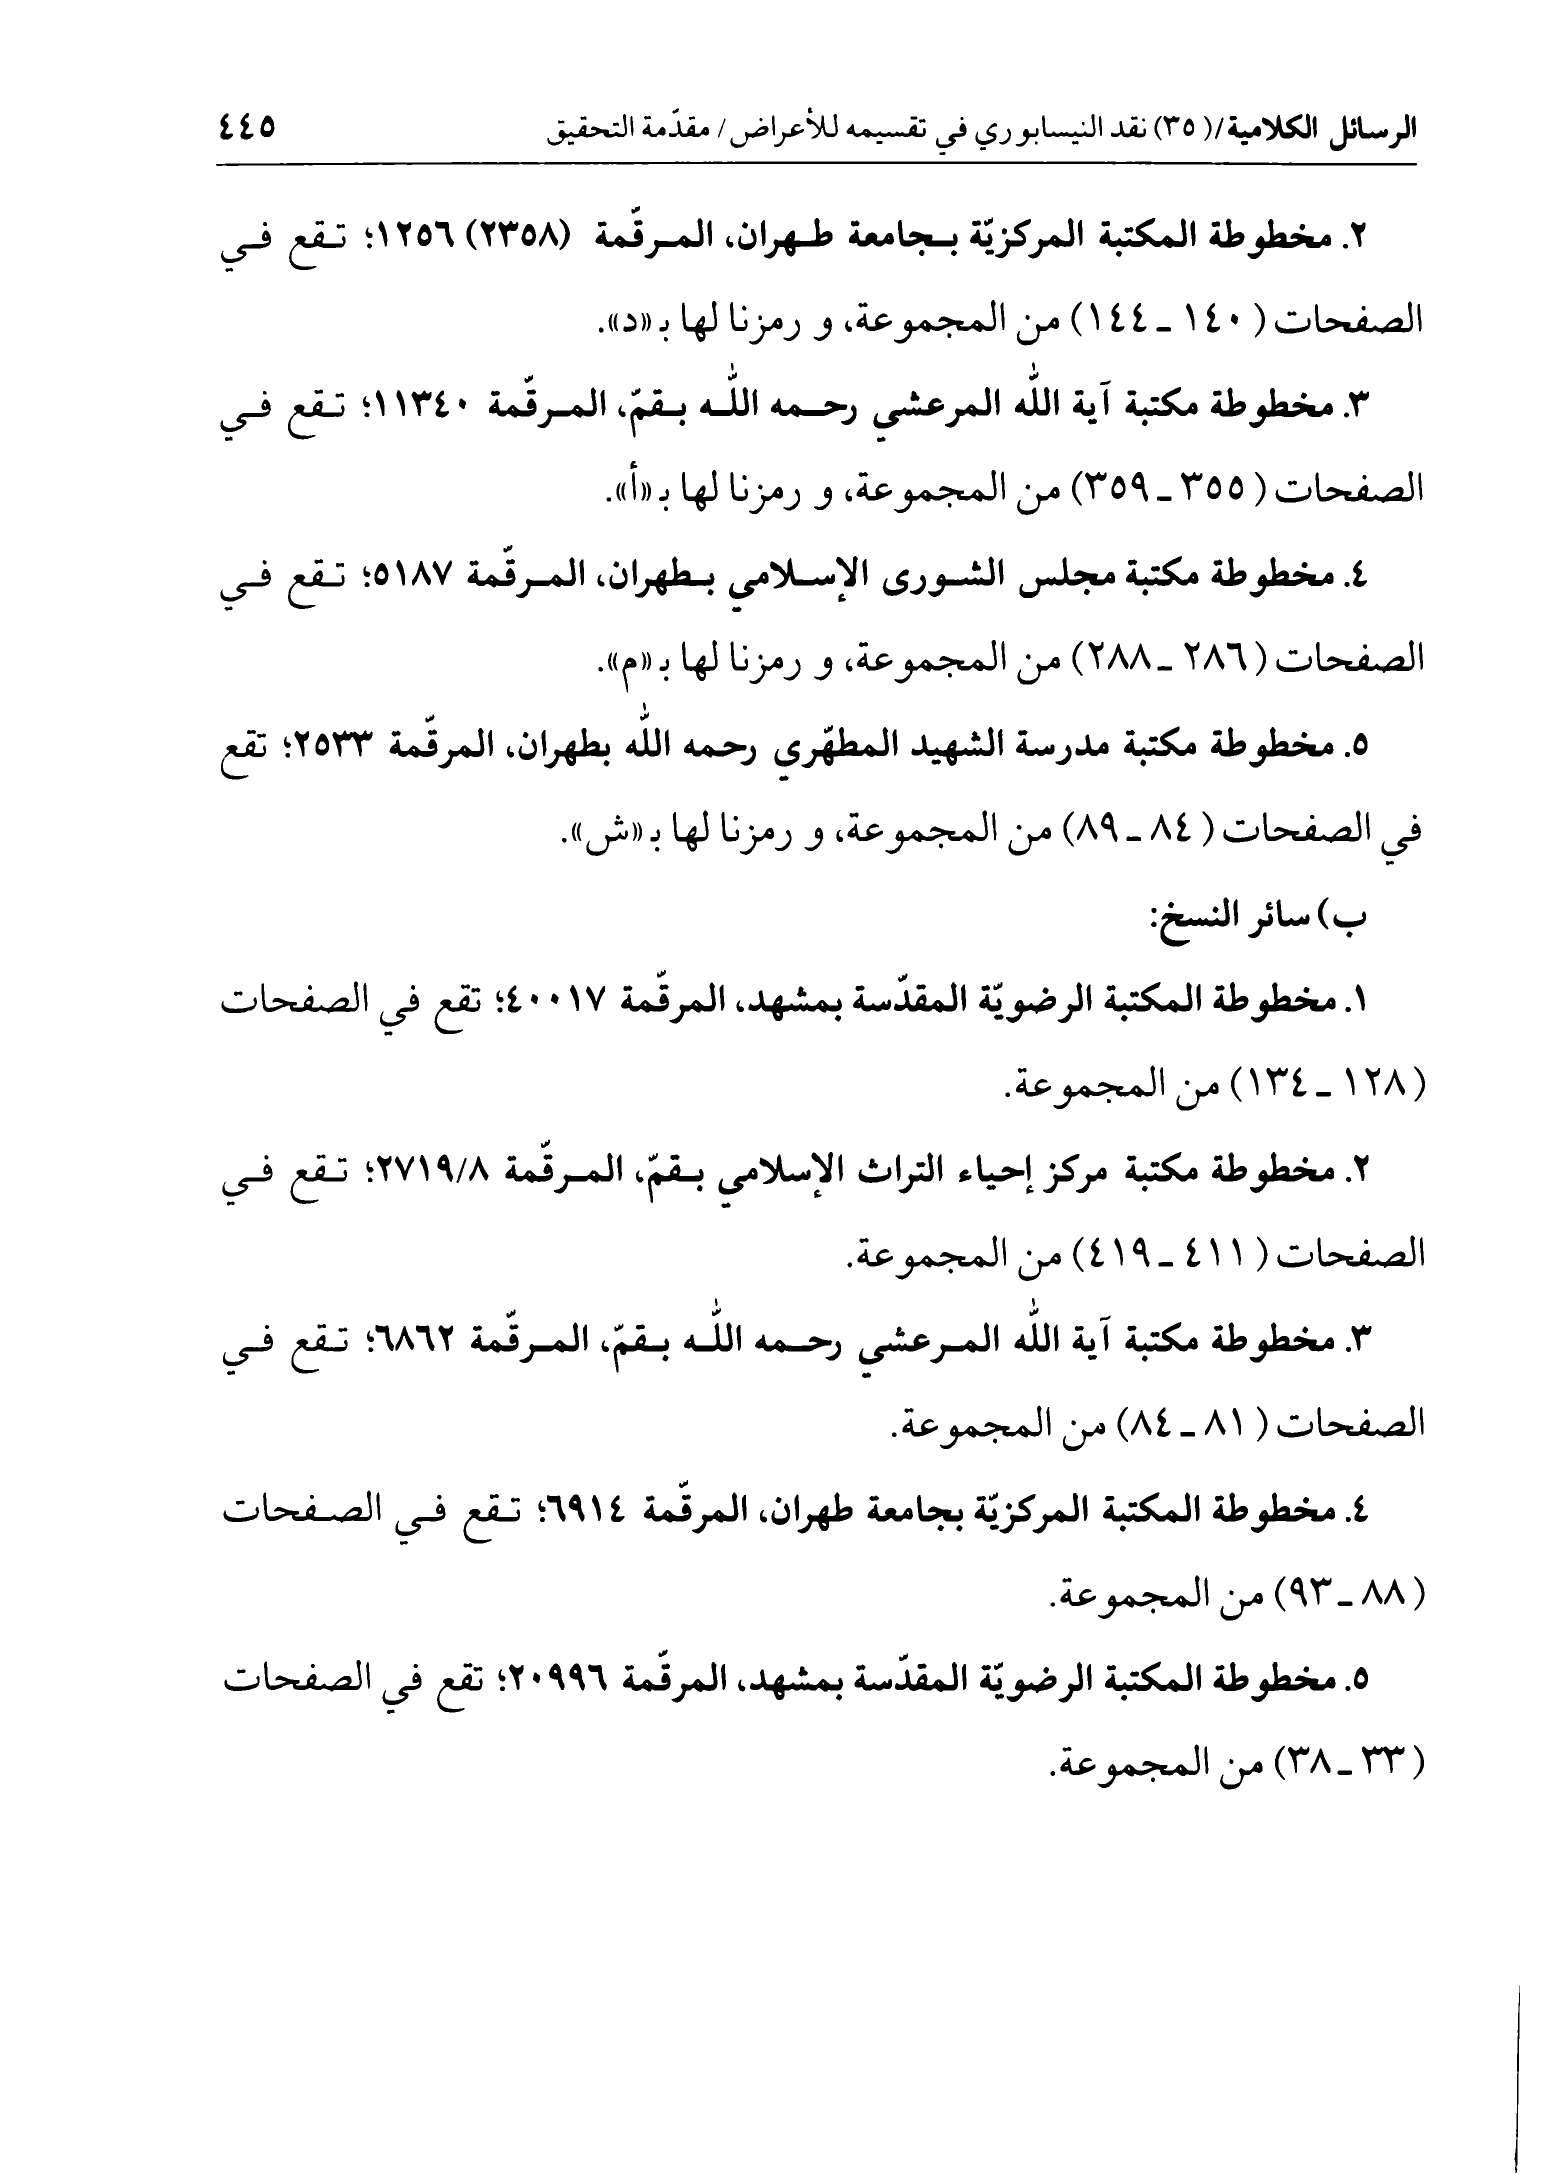 الرسائل الكلامية/(٣٥) نقد النيسابوري في تقسيمه للأعراض / مقدّمة التحقيق ٤٤٥
٢. مخطوطة المكتبة المركزيّة بـجامعة طـهران، المـرقّمة (٢٣٥٨) ١٢٥٦؛ تـقع فـي
الصفحات (١٤٠ ـ ١٤٤) من المجموعة، و رمزنا لها بـ«د».
٣. مخطوطة مكتبة آية اللّٰه المرعشي رحـمه اللّٰـه بـقمّ، المـرقّمة ١١٣٤٠؛ تـقع فـي
الصفحات (٣٥٥ ـ ٣٥٩) من المجموعة، و رمزنا لها بـ«أ».
٤. مخطوطة مكتبة مجلس الشـورى الإسـلامي بـطهران، المـرقّمة ٥١٨٧؛ تـقع فـي
الصفحات (٢٨٦ ـ ٢٨٨) من المجموعة، و رمزنا لها بـ«م».
٥. مخطوطة مكتبة مدرسة الشهيد المطهّري رحمه اللّٰه بطهران، المرقّمة ٢٥٣٣؛ تقع
في الصفحات (٨٤ ـ ٨٩) من المجموعة، و رمزنا لها بـ«ش».
ب) سائر النسخ:
١. مخطوطة المكتبة الرضويّة المقدّسة بمشهد، المرقّمة ٤٠٠١٧؛ تقع في الصفحات
(١٢٨ ـ ١٣٤) من المجموعة.
٢. مخطوطة مكتبة مركز إحياء التراث الإسلامي بـقمّ، المـرقّمة ٢٧١٩/٨؛ تـقع فـي
الصفحات (٤١١ ـ ٤١٩) من المجموعة.
٣. مخطوطة مكتبة آية اللّٰه المـرعشي رحـمه اللّٰـه بـقمّ، المـرقّمة ٦٨٦٢؛ تـقع فـي
الصفحات (٨١ ـ ٨٤) من المجموعة.
٤. مخطوطة المكتبة المركزيّة بجامعة طهران، المرقّمة ٦٩١٤؛ تـقع فـي الصـفحات
(٨٨ ـ ٩٣) من المجموعة.
٥. مخطوطة المكتبة الرضويّة المقدّسة بمشهد، المرقّمة ٢٠٩٩٦؛ تقع في الصفحات
(٣٣ ـ ٣٨) من المجموعة.